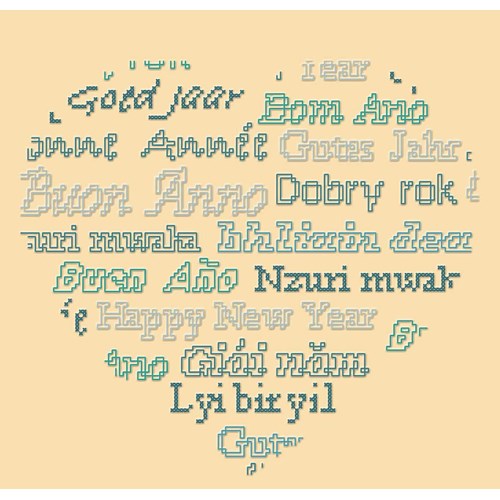 Year
Goed jaar Bom Ano
Année Gutes Jahr
Buon Anno Dobry rok
wri mwaka bhliain dea
Buen Año Nzuri mwak
Happy New Year
Giái năm
Lyi bir yil
Gut